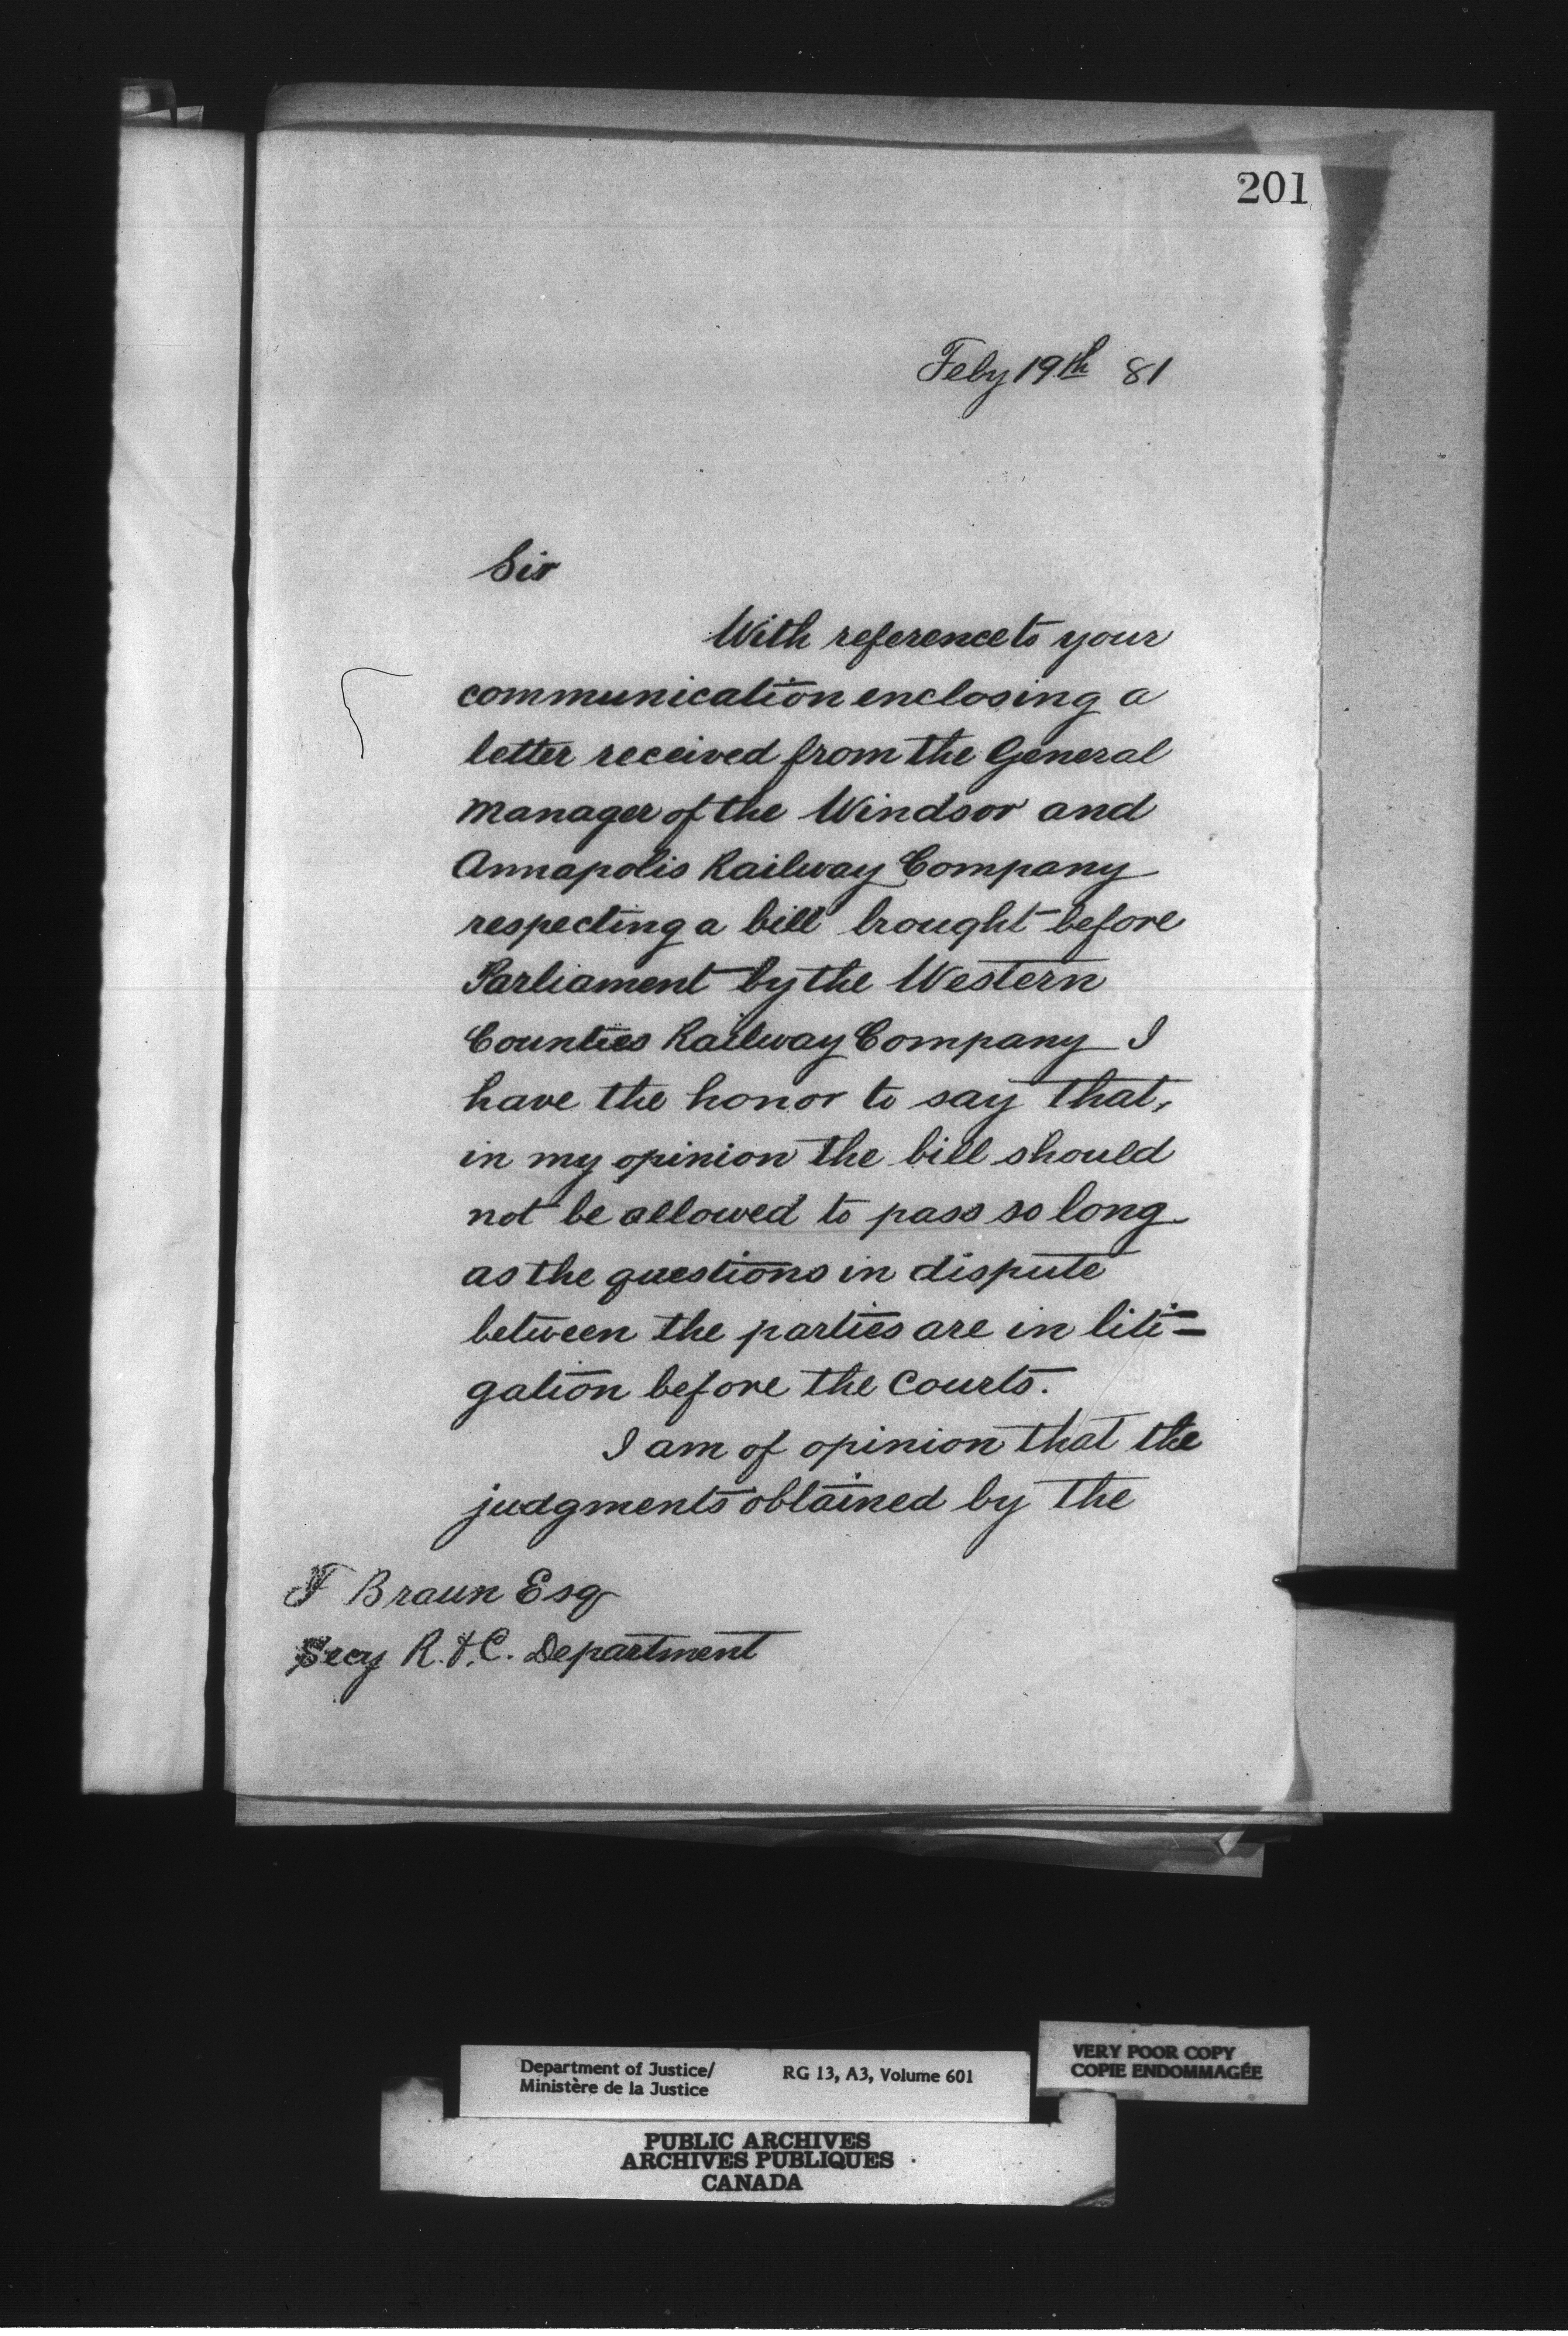 201
Feby 19th 81
Sir
With reference to your
communication enclosing a
letter received from the General
Manager of the Windsor and
Annapolis Railway Company
respecting a bill brought before
Parliament by the Western
Counties Railway Company I
have the honor to say that,
in my opinion the bill should
not be allowed to pass so long
as the questions in dispute
between the parties are in liti=
gation before the Courts.
I am of opinion that the
judgments obtained by the
F Braun Esq
Secy R. & C. Department
Department of Justice/ RG 13, A3, Volume 601
Ministère de la Justice
VERY POOR COPY
COPIE ENDOMMAGÉE
PUBLIC ARCHIVES
ARCHIVES PUBLIQUES
CANADA